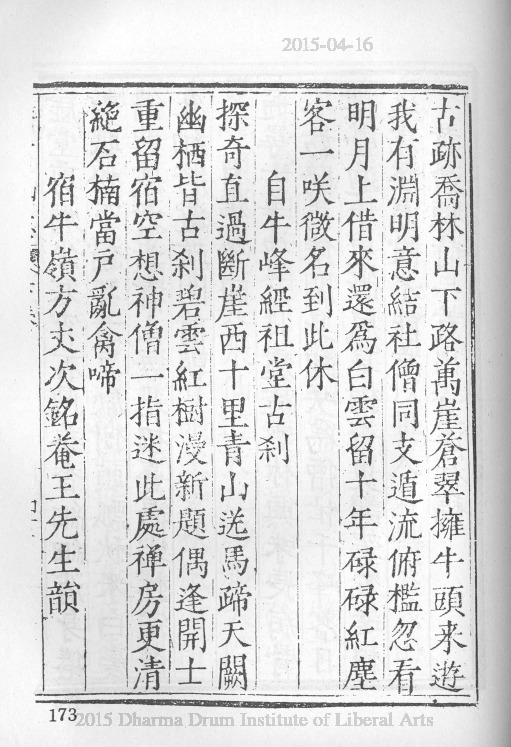 2015-04-16
古跡喬林山下路萬崖蒼翠擁牛頭来遊
我有淵明意結社僧同支遁流俯檻忽看
明月上借來還爲白雲留十年碌碌紅塵
客一咲微名到此休
自牛峰經祖堂古刹
探奇直過斷崖西十里青山送馬蹄天闕
幽栖皆古刹碧雲紅樹漫新題偶逢開士
重留宿空想神僧一指迷此處禅房更清
絶石楠當戸亂禽啼
宿牛嶺方丈次銘菴王先生韻
173
2015 Dharma Drum Institute of Liberal Arts